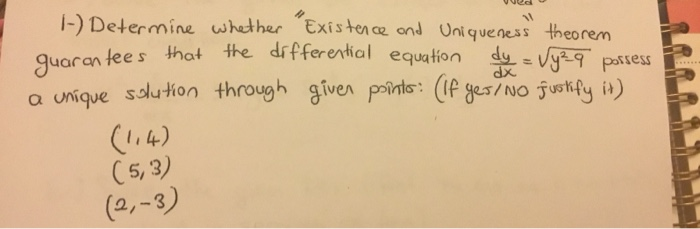 1-) Determine whether "Existence and Uniqueness" theorem
guarantees that the differential equation dy/dx = √y²-9 possess
a unique solution through given points: (If yes/NO justify it)
(1,4)
(5,3)
(2,-3)